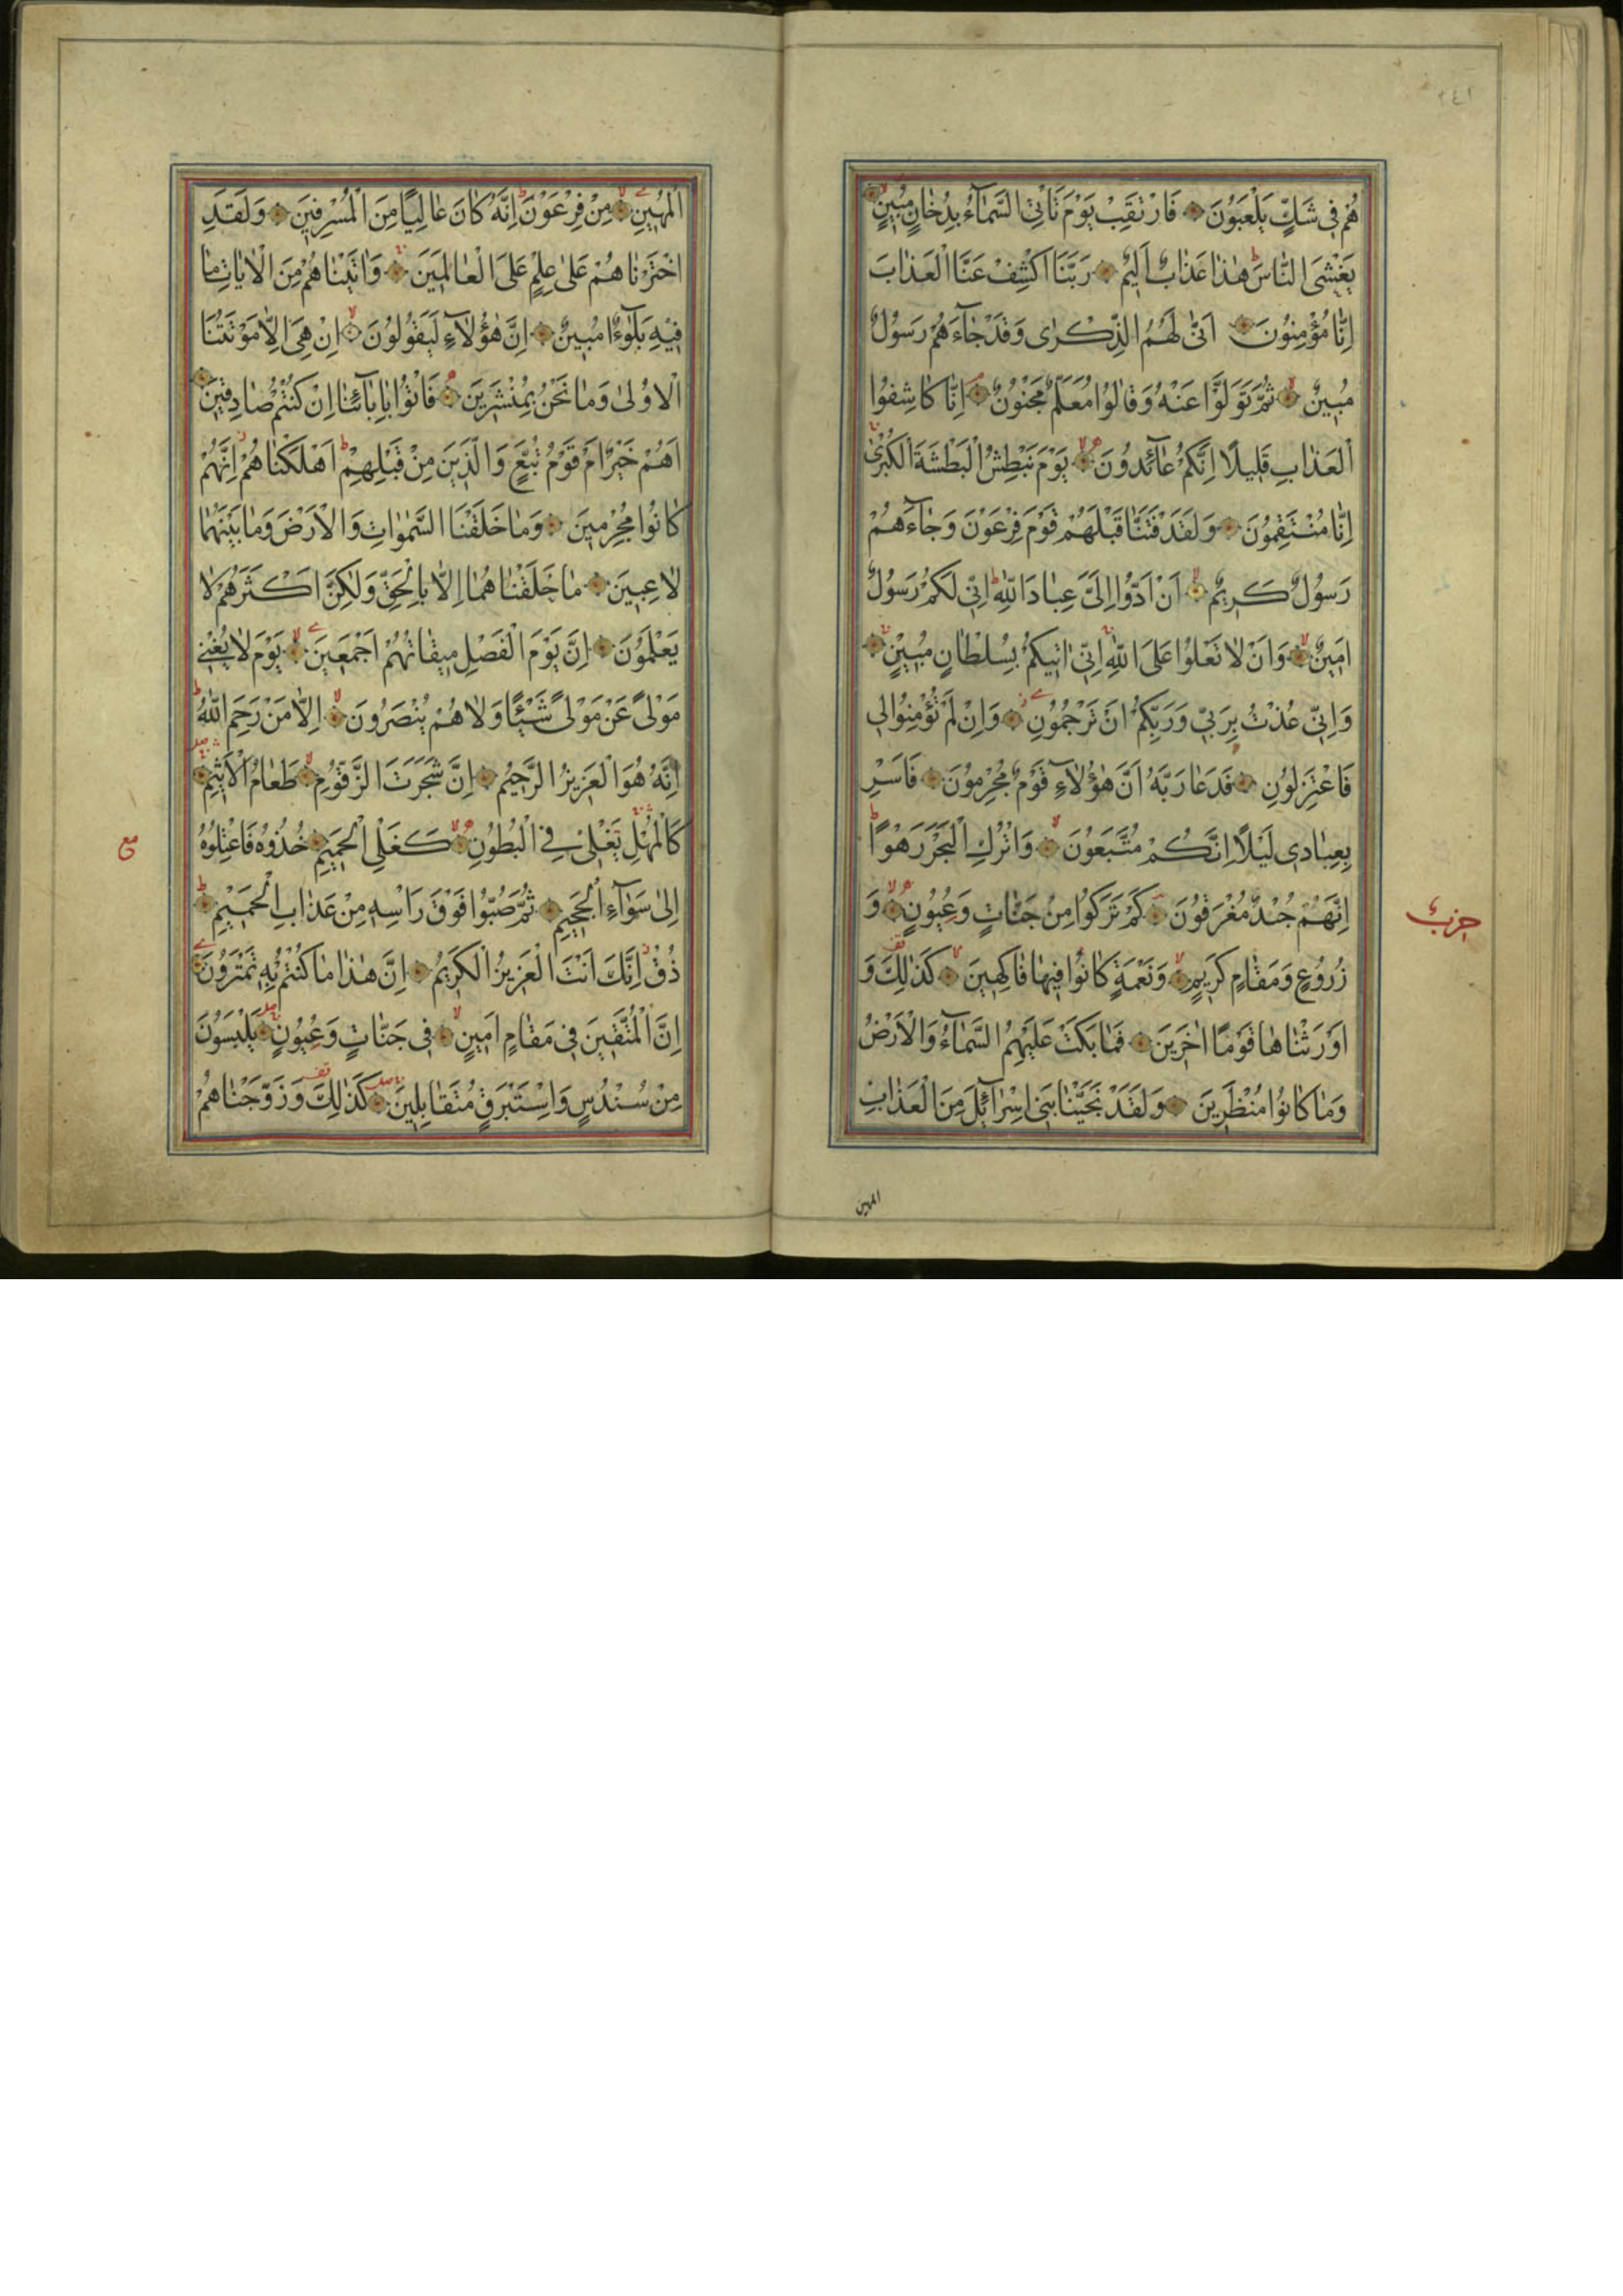 ٢٤١
هُمْ فِى شَكٍّ يَلْعَبُونَ فَارْتَقِبْ يَوْمَ تَأْتِى السَّمَآءُ بِدُخَانٍ مُبِينٍ
يَغْشَى النَّاسَ هٰذَا عَذَابٌ اَلِيمٌ رَبَّنَا اكْشِفْ عَنَّا الْعَذَابَ
اِنَّا مُؤْمِنُونَ اَنّٰى لَهُمُ الذِّكْرٰى وَقَدْ جَآءَهُمْ رَسُولٌ
مُبِينٌ ثُمَّ تَوَلَّوْا عَنْهُ وَقَالُوا مُعَلَّمٌ مَجْنُونٌ اِنَّا كَاشِفُوا
الْعَذَابِ قَلِيلًا اِنَّكُمْ عَآئِدُونَ يَوْمَ نَبْطِشُ الْبَطْشَةَ الْكُبْرٰى
اِنَّا مُنْتَقِمُونَ وَلَقَدْ فَتَنَّا قَبْلَهُمْ قَوْمَ فِرْعَوْنَ وَجَآءَهُمْ
رَسُولٌ كَرِيمٌ اَنْ اَدُّوا اِلَىَّ عِبَادَ اللّٰهِ اِنِّى لَكُمْ رَسُولٌ
اَمِينٌ وَاَنْ لَا تَعْلُوا عَلَى اللّٰهِ اِنِّى اٰتِيكُمْ بِسُلْطَانٍ مُبِينٍ
وَاِنِّى عُذْتُ بِرَبِّى وَرَبِّكُمْ اَنْ تَرْجُمُونِ وَاِنْ لَمْ تُؤْمِنُوا لِى
فَاعْتَزِلُونِ فَدَعَا رَبَّهُ اَنَّ هٰؤُلَآءِ قَوْمٌ مُجْرِمُونَ فَاَسْرِ
بِعِبَادِى لَيْلًا اِنَّكُمْ مُتَّبَعُونَ وَاتْرُكِ الْبَحْرَ رَهْوًا
اِنَّهُمْ جُنْدٌ مُغْرَقُونَ كَمْ تَرَكُوا مِنْ جَنَّاتٍ وَعُيُونٍ وَ
حزب
زُرُوعٍ وَمَقَامٍ كَرِيمٍ وَنَعْمَةٍ كَانُوا فِيهَا فَاكِهِينَ كَذٰلِكَ وَ
اَوْرَثْنَاهَا قَوْمًا اٰخَرِينَ فَمَا بَكَتْ عَلَيْهِمُ السَّمَآءُ وَالْاَرْضُ
وَمَا كَانُوا مُنْظَرِينَ وَلَقَدْ نَجَّيْنَا بَنِى اِسْرَآئِلَ مِنَ الْعَذَابِ
المهين
الْمُهِينِ مِنْ فِرْعَوْنَ اِنَّهُ كَانَ عَالِيًا مِنَ الْمُسْرِفِينَ وَلَقَدِ
اخْتَرْنَاهُمْ عَلٰى عِلْمٍ عَلَى الْعَالَمِينَ وَاٰتَيْنَاهُمْ مِنَ الْاٰيَاتِ مَا
فِيهِ بَلٰٓؤٌا مُبِينٌ اِنَّ هٰؤُلَآءِ لَيَقُولُونَ اِنْ هِىَ اِلَّا مَوْتَتُنَا
الْاُولٰى وَمَا نَحْنُ بِمُنْشَرِينَ فَاْتُوا بِاٰبَآئِنَا اِنْ كُنْتُمْ صَادِقِينَ
اَهُمْ خَيْرٌ اَمْ قَوْمُ تُبَّعٍ وَالَّذِينَ مِنْ قَبْلِهِمْ اَهْلَكْنَاهُمْ اِنَّهُمْ
كَانُوا مُجْرِمِينَ وَمَا خَلَقْنَا السَّمٰوَاتِ وَالْاَرْضَ وَمَا بَيْنَهُمَا
لَاعِبِينَ مَا خَلَقْنَاهُمَا اِلَّا بِالْحَقِّ وَلٰكِنَّ اَكْثَرَهُمْ لَا
يَعْلَمُونَ اِنَّ يَوْمَ الْفَصْلِ مِيقَاتُهُمْ اَجْمَعِينَ يَوْمَ لَا يُغْنِى
مَوْلًى عَنْ مَوْلًى شَيْئًا وَلَا هُمْ يُنْصَرُونَ اِلَّا مَنْ رَحِمَ اللّٰهُ
اِنَّهُ هُوَ الْعَزِيزُ الرَّحِيمُ اِنَّ شَجَرَتَ الزَّقُّومِ طَعَامُ الْاَثِيمِ
كَالْمُهْلِ يَغْلِى فِى الْبُطُونِ كَغَلْىِ الْحَمِيمِ خُذُوهُ فَاعْتِلُوهُ
مع
اِلٰى سَوَآءِ الْجَحِيمِ ثُمَّ صُبُّوا فَوْقَ رَاْسِهِ مِنْ عَذَابِ الْحَمِيمِ
ذُقْ اِنَّكَ اَنْتَ الْعَزِيزُ الْكَرِيمُ اِنَّ هٰذَا مَا كُنْتُمْ بِهِ تَمْتَرُونَ
اِنَّ الْمُتَّقِينَ فِى مَقَامٍ اَمِينٍ فِى جَنَّاتٍ وَعُيُونٍ يَلْبَسُونَ
مِنْ سُنْدُسٍ وَاِسْتَبْرَقٍ مُتَقَابِلِينَ كَذٰلِكَ وَزَوَّجْنَاهُمْ